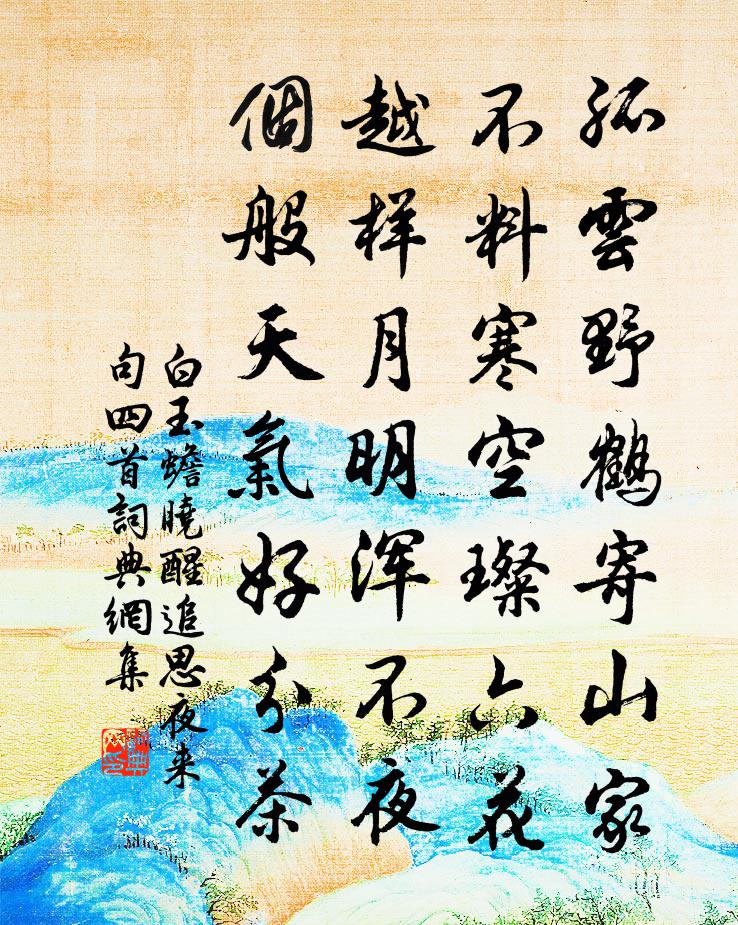 孤雲野鶴寄山家
不料寒空璨六花
越样月明浑不夜
個般天氣好分茶
白玉蟾曉醒追思夜来
句四首詞典網集